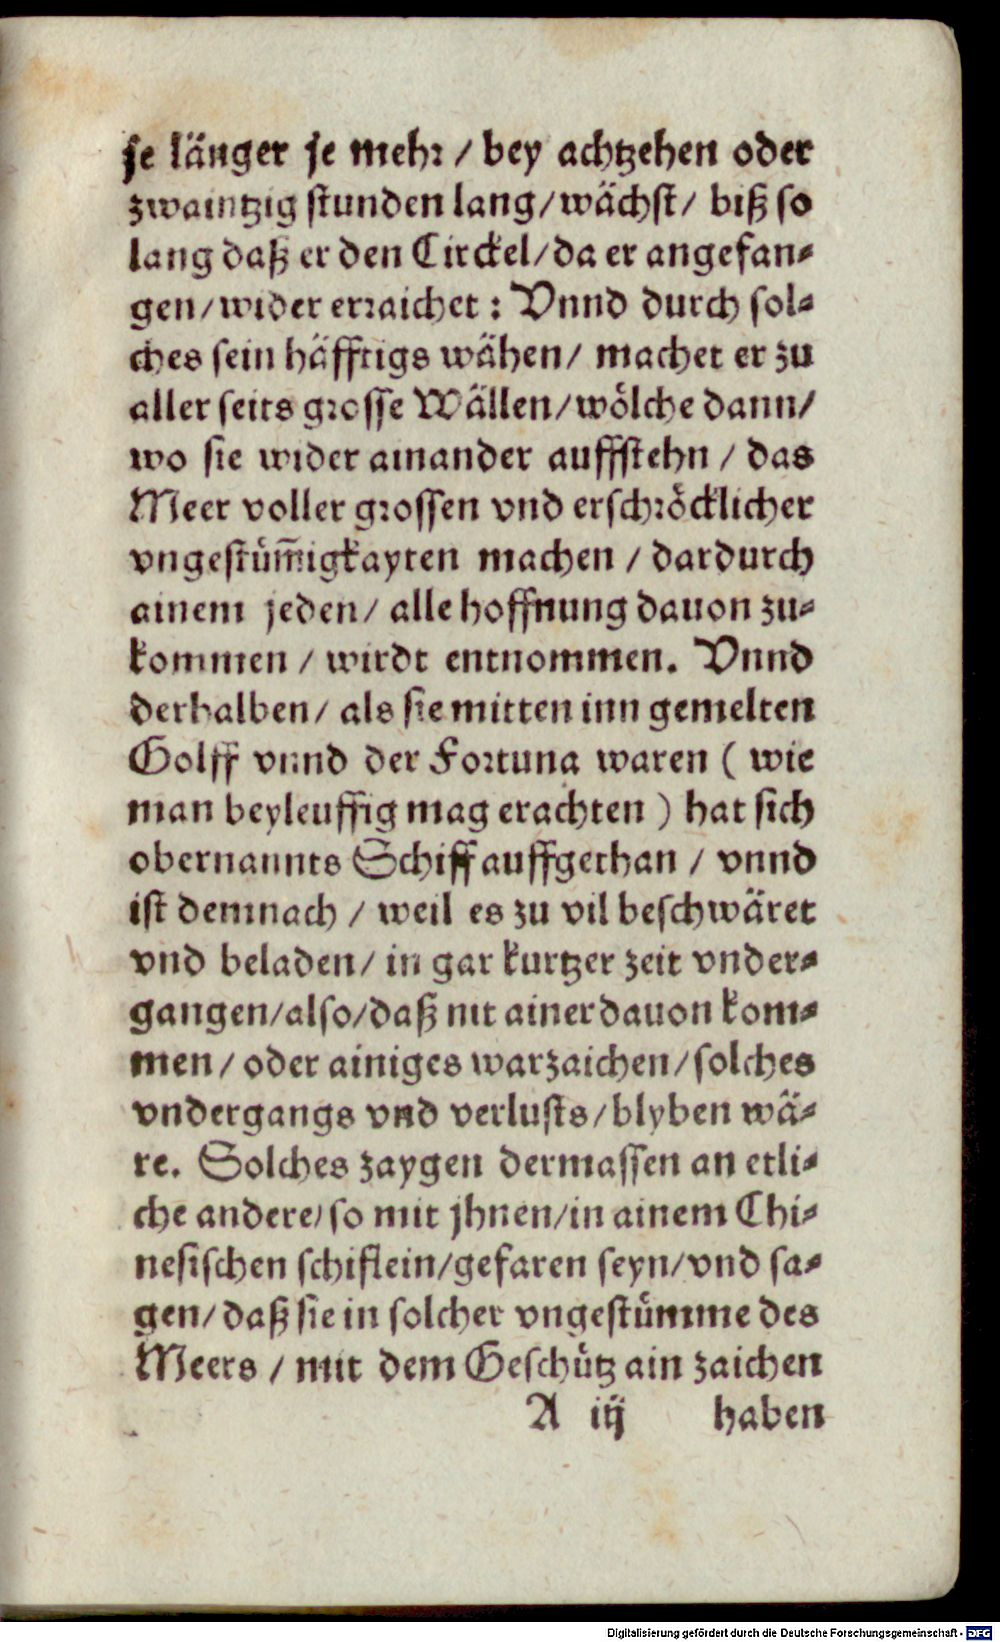 je länger je mehr / bey achtzehen oder
zwaintzig stunden lang/wächst/ biß so
lang daß er den Circkel/da er angefan⸗
gen/wider erraichet : Vnnd durch sol⸗
ches sein häfftigs wähen/ machet er zu
aller seits grosse Wällen/wölche dann/
wo sie wider ainander auffstehn / das
Meer voller grossen vnd erschröcklicher
vngestüm̄igkayten machen / dardurch
ainem jeden/ alle hoffnung dauon zu⸗
kommen / wirdt entnommen. Vnnd
derhalben/ als sie mitten inn gemelten
Golff vnnd der Fortuna waren ( wie
man beyleuffig mag erachten ) hat sich
obernannts Schiff auffgethan / vnnd
ist demnach / weil es zu vil beschwäret
vnd beladen/ in gar kurtzer zeit vnder⸗
gangen/also/daß nit ainer dauon kom⸗
men / oder ainiges warzaichen/solches
vndergangs vnd verlusts/blyben wä⸗
re. Solches zaygen dermassen an etli⸗
che andere/so mit jhnen/in ainem Chi⸗
nesischen schiflein/gefaren seyn/vnd sa⸗
gen/daß sie in solcher vngestümme des
Meers / mit dem Geschütz ain zaichen
A iij haben
Digitalisierung gefördert durch die Deutsche Forschungsgemeinschaft - DFG